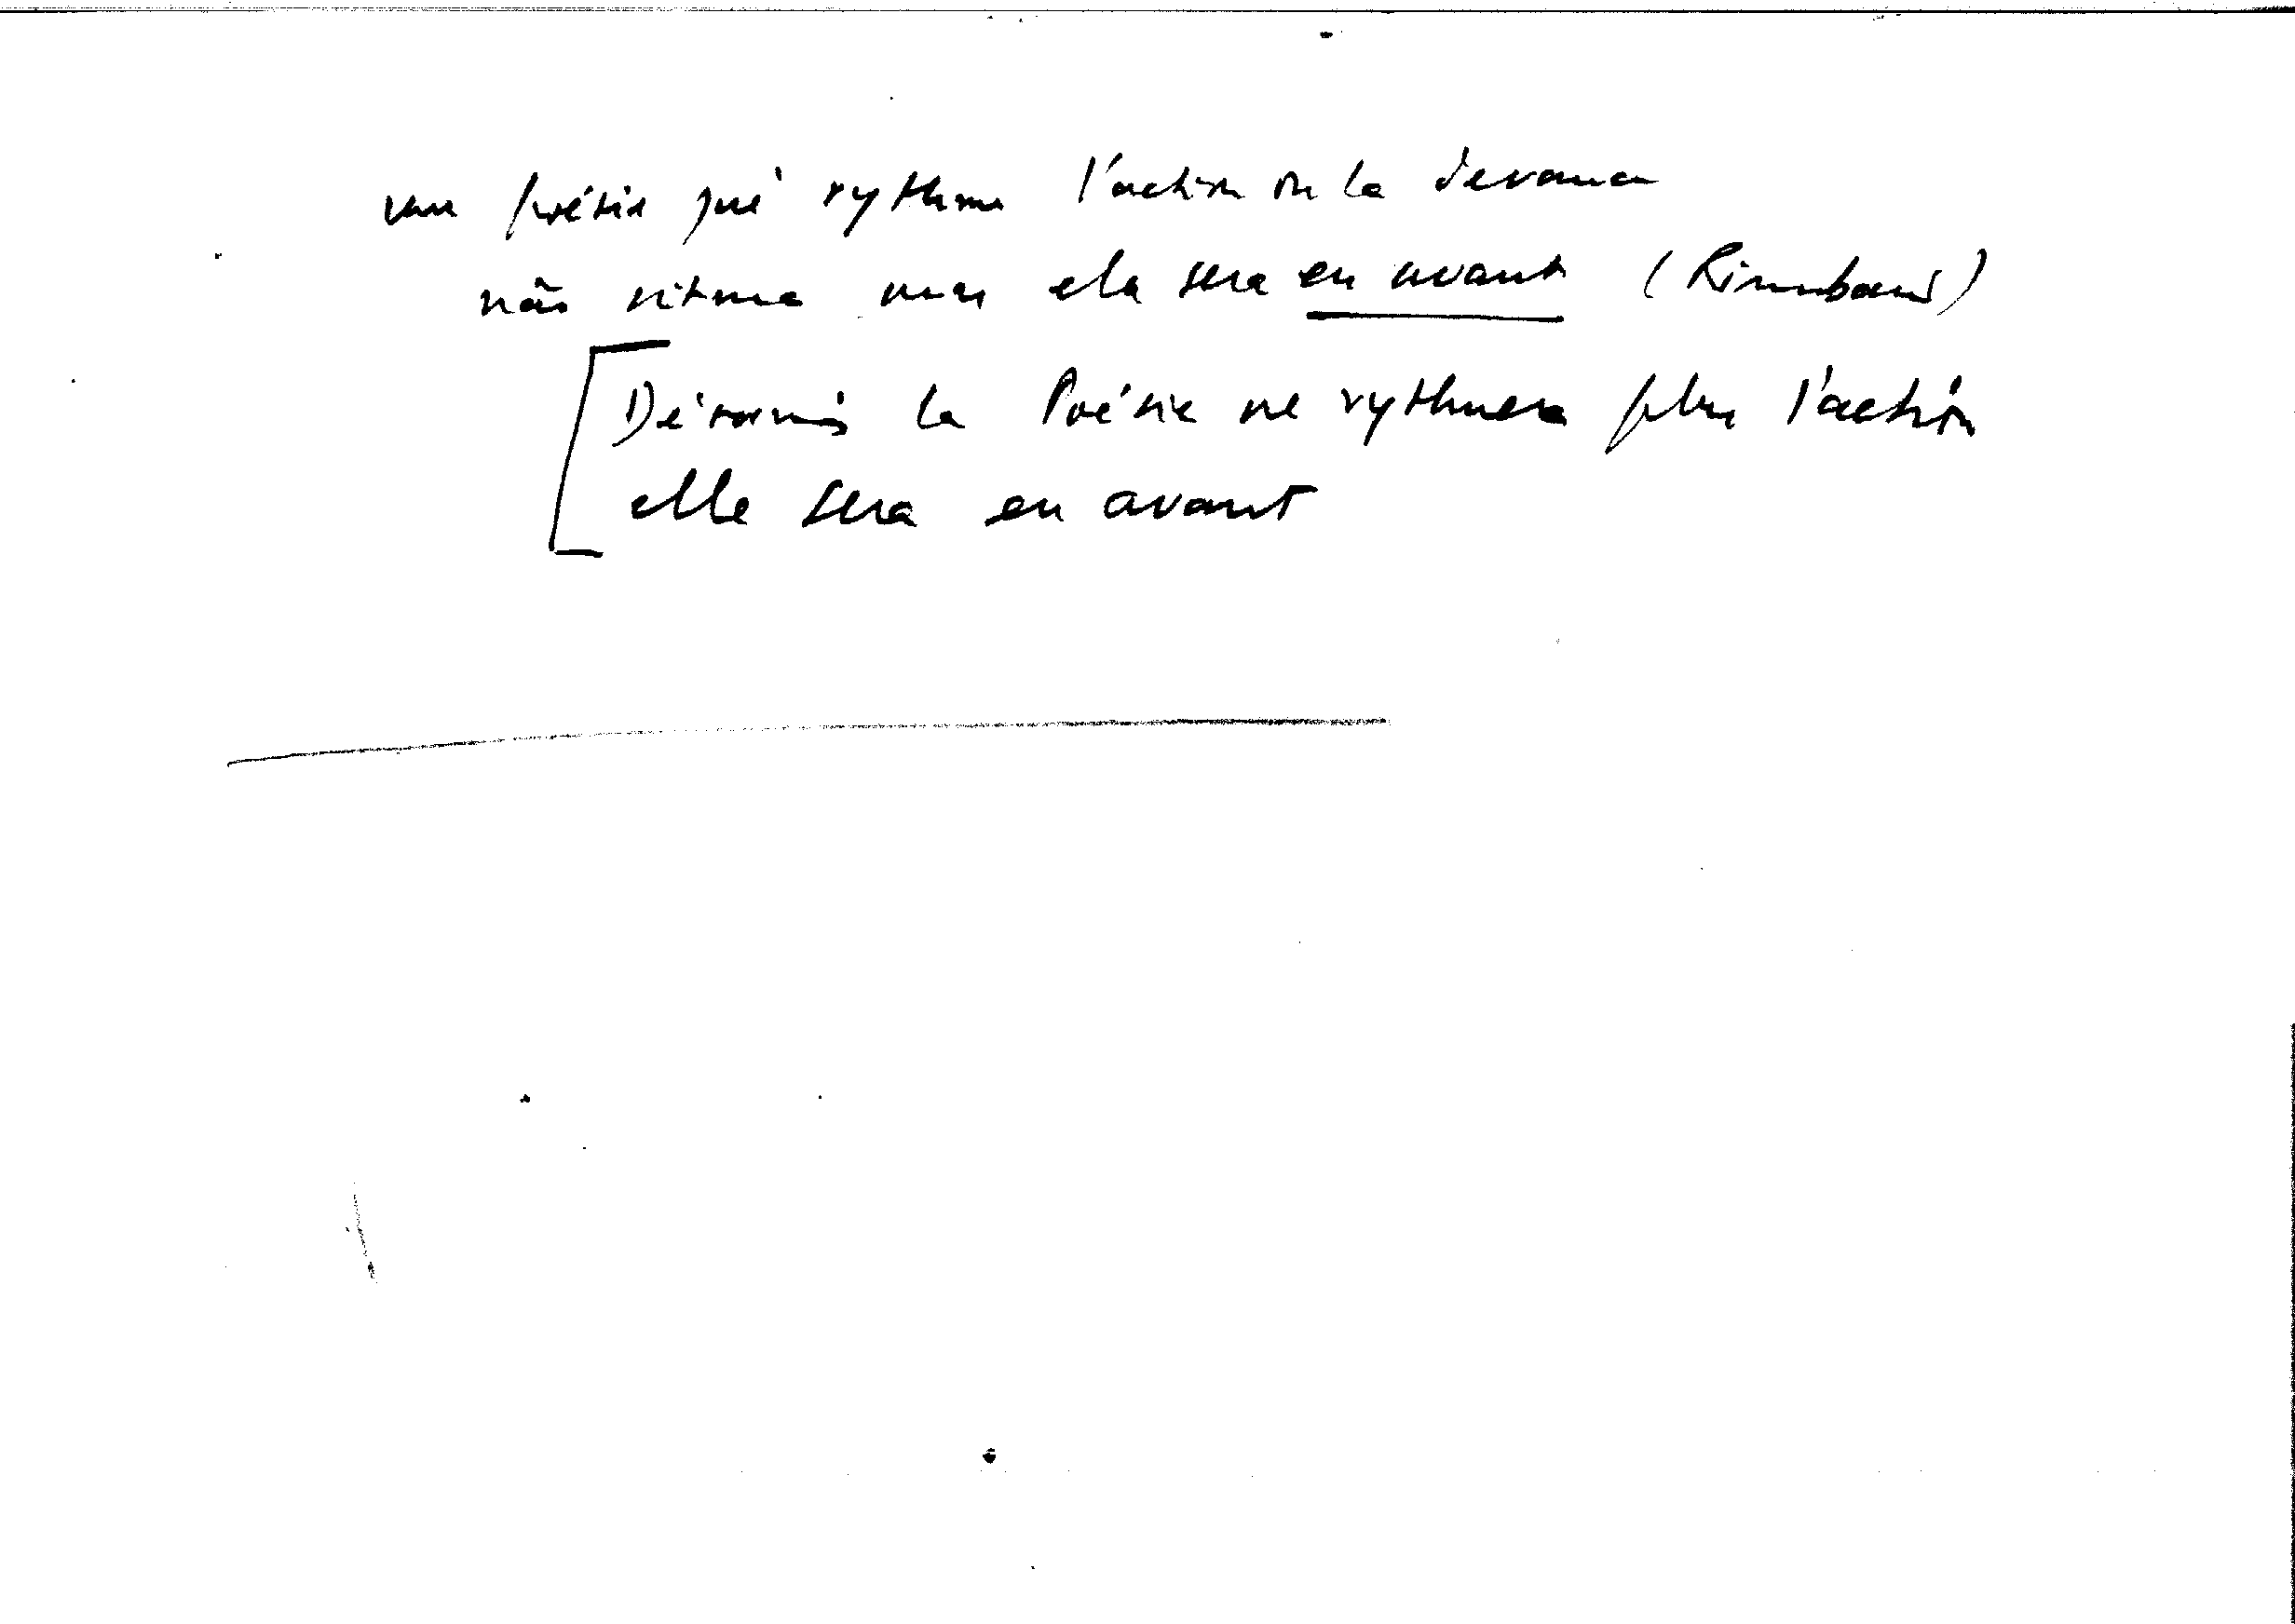 une poésie qui rythme l'action ou la devance
não ritma mas ela sera en avant (Rimbaud)
Désormais la Poésie ne rythmera plus l'action
elle sera en avant